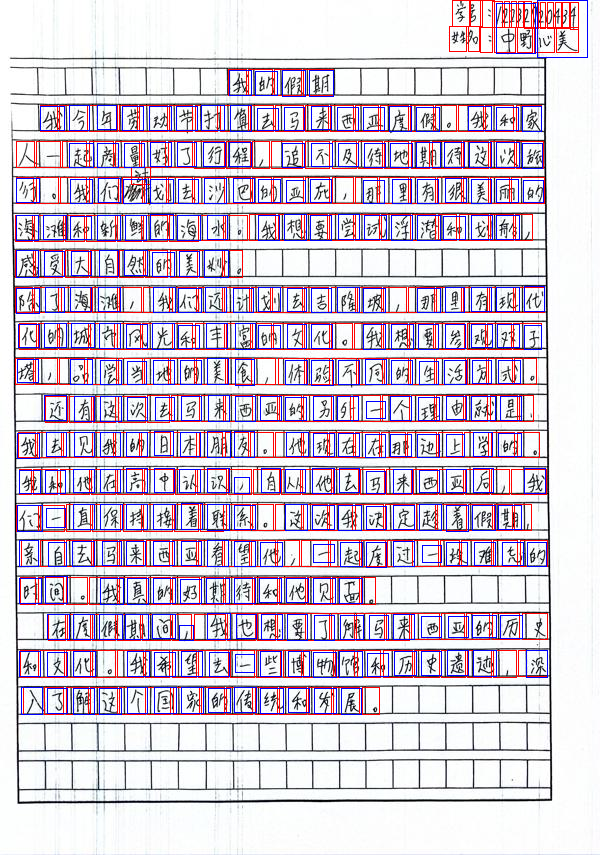 姓名：中野沁美
我的假期
我今年劳动节打算去马来西亚度假。我和家
人一起商量好了行程，迫不及待地期待这次旅
行。我们计戈去沙巴的亚庇，那里有很美丽的
海滩和新鲜的海水。我想要尝试浮潜和划船，
感受大自然的美妙。
除了海滩，我们还计划去吉隆坡，那里有现代
化的城市风光和丰富的文化。我想要参观双子
塔，品尝当地的美食，体验不同的生活方式。
还有这次去马来西亚的另外一个理由就是，
我去见我的日本朋友。他现在在那边上学的。
我和他在高中认识，自从他去马来西亚后，我
们一直保持接着联系。这次我决定趁着假期，
亲自去马来西亚看望他，一起度过一段难忘的
时间。我真的好期待和他见面。
在度假期间，我也想要了解马来西亚的历史
和文化。我希望去一些博物馆和历史遗迹，深
入了解这个国家的传统和发展。